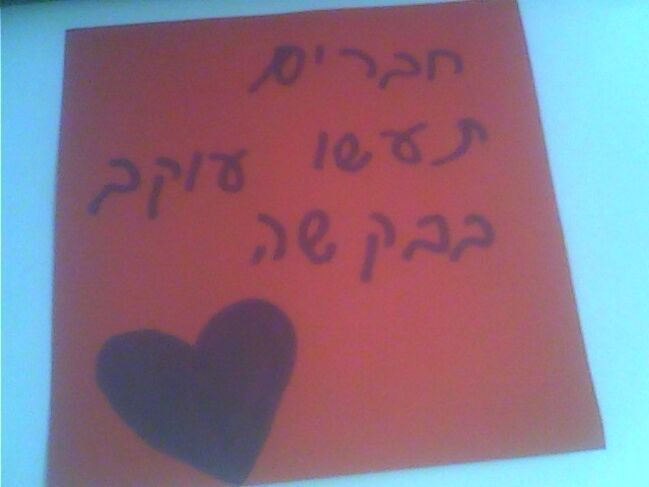 חברים
תעשו עוקב
בבקשה